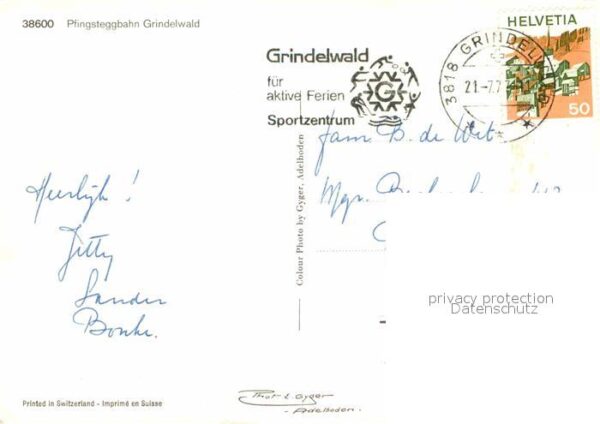 38600 Pfingsteggbahn Grindelwald
Grindelwald
für
aktive Ferien
Sportzentrum
G
3818 GRINDEL
21.-7.7
HELVETIA
50
Fam. B. de Wit
Mgr.
Heerlijk!
Jetty
Sander
Colour Photo by Gyger, Adelboden
privacy protection
Datenschutz
Printed in Switzerland - Imprimé en Suisse
Phot. Gyger
Adelboden.